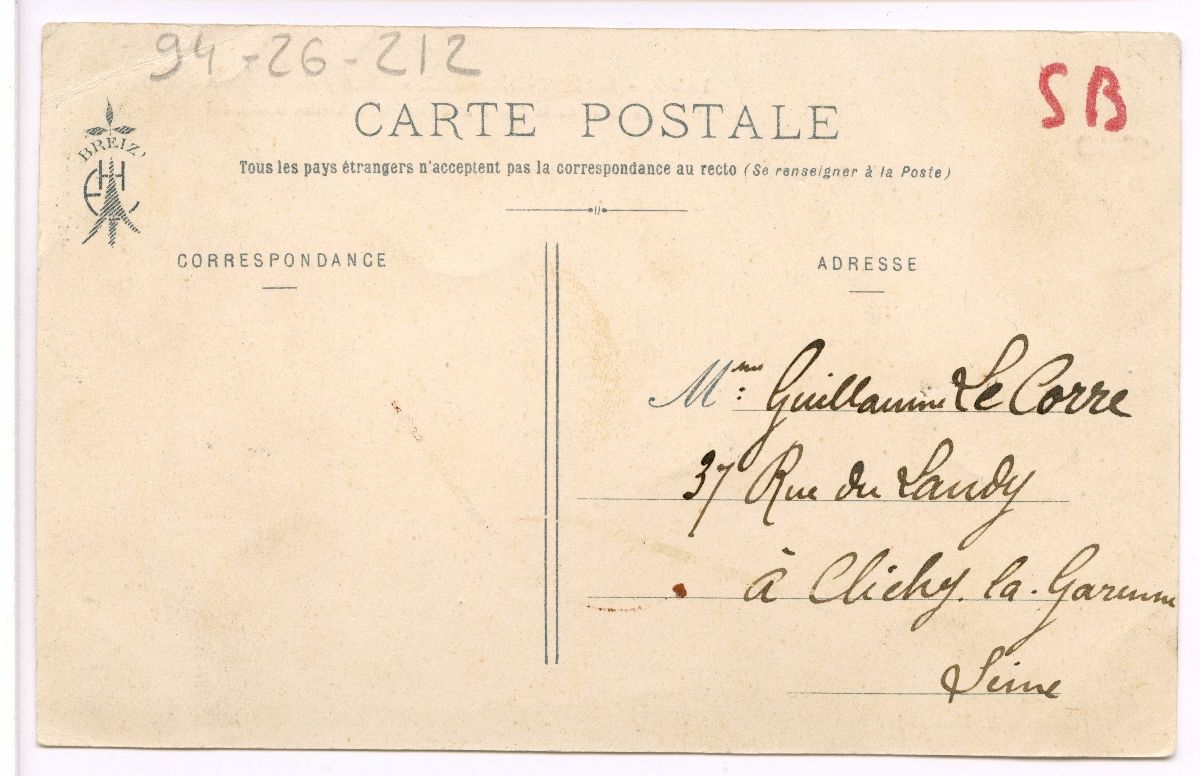 94-26-212
SB
BREIZ'
CARTE POSTALE
Tous les pays étrangers n'acceptent pas la correspondance au recto (Se renseigner à la Poste)
CORRESPONDANCE
ADRESSE
Mme Guillaume Le Corre
37 Rue du Landy
à Clichy. la. Garenne
Seine